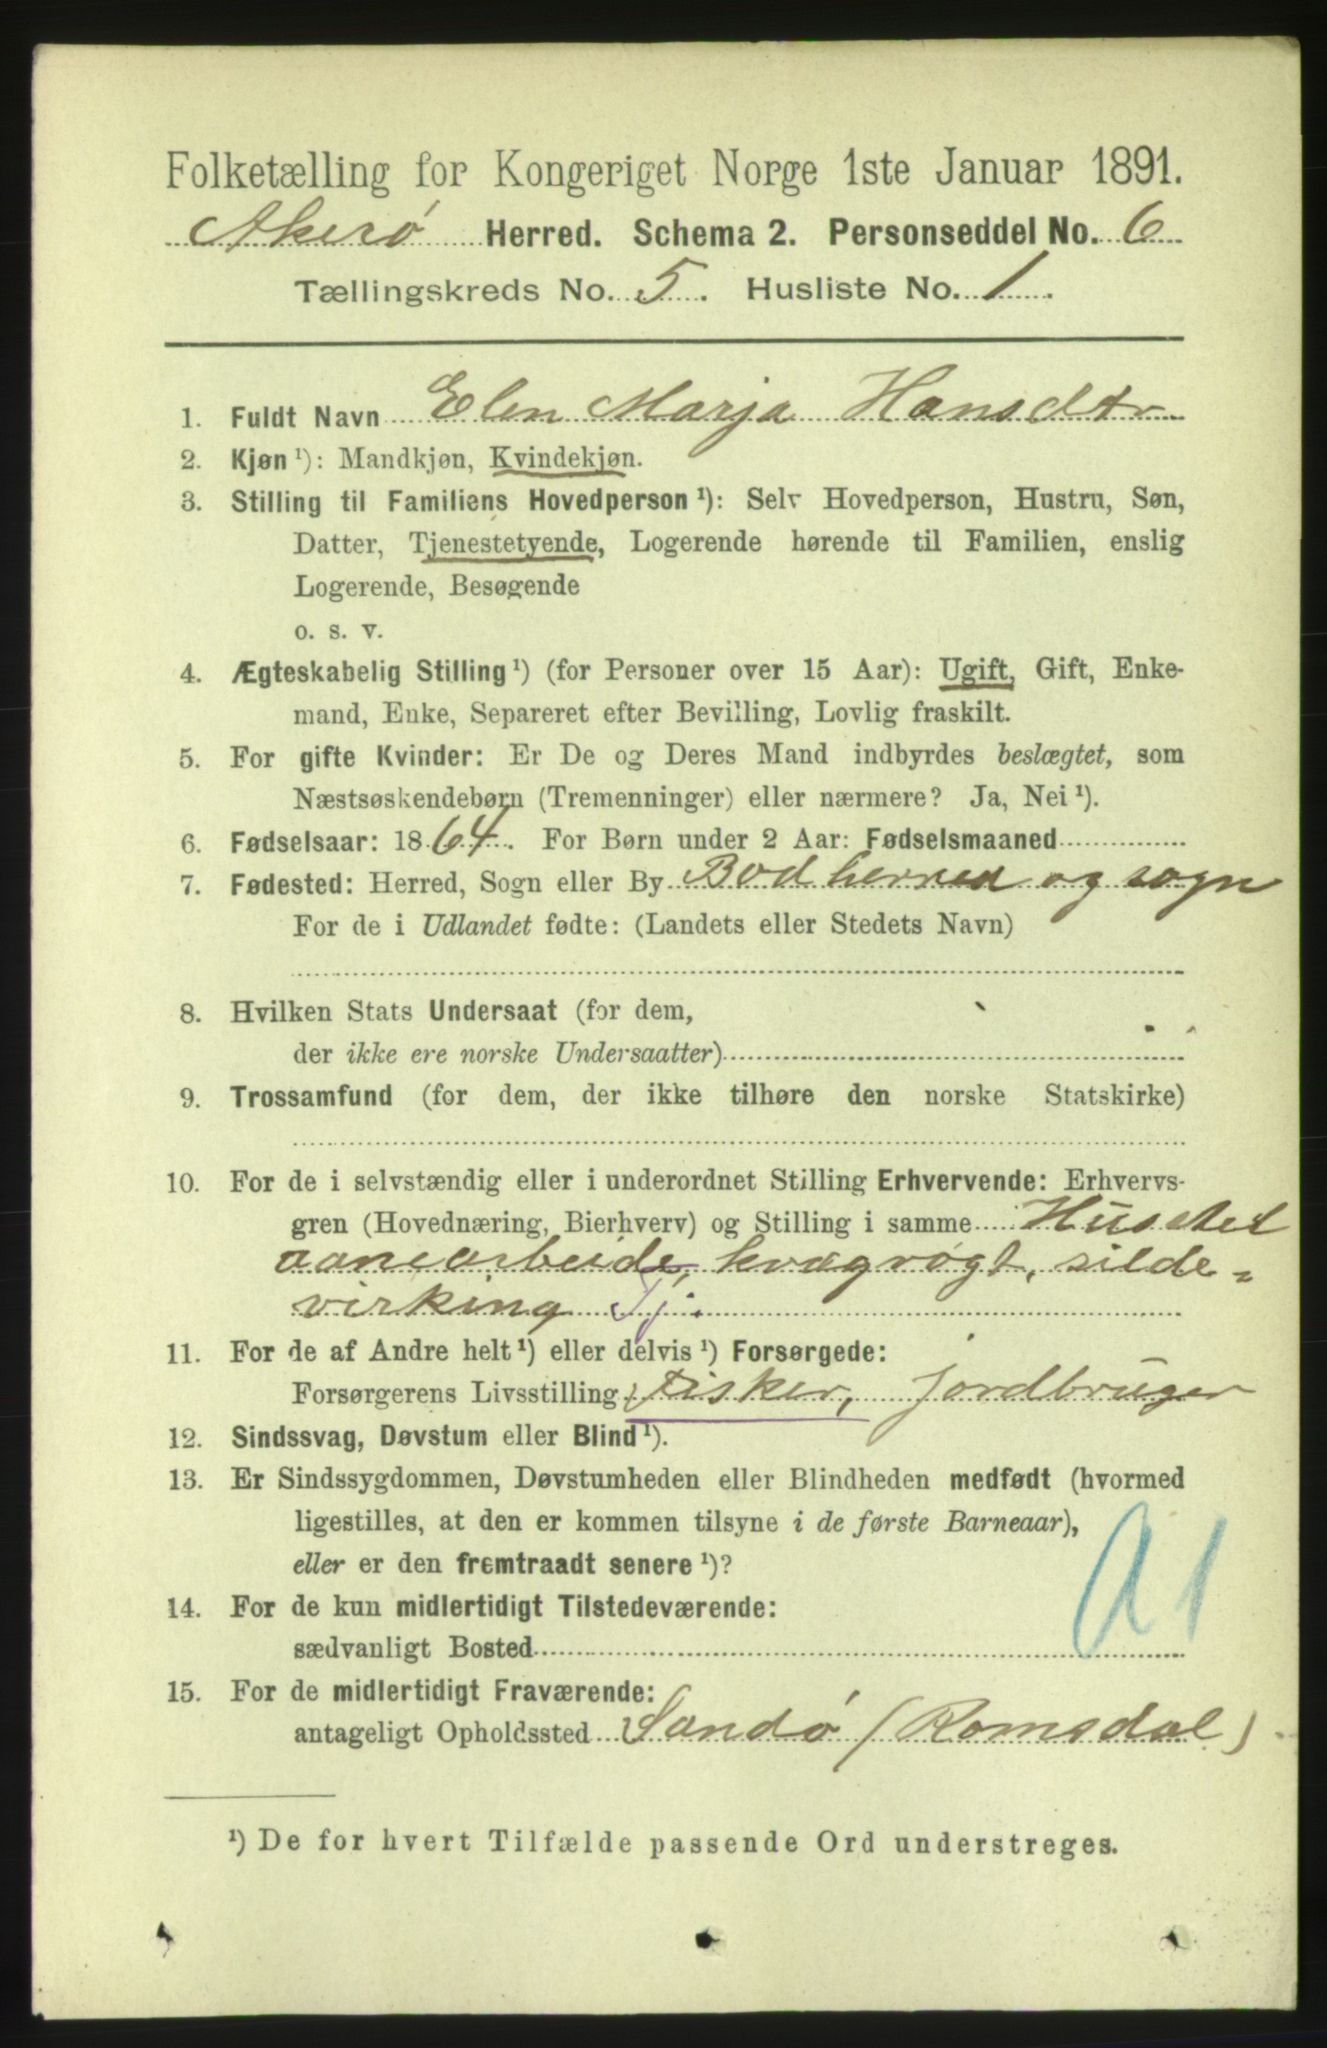 Folketælling for Kongeriget Norge 1ste Januar 1891.
Akerø Herred. Schema 2. Personseddel No. 6
Tællingskreds No. 5. Husliste No. 1.
1. Fuldt Navn Elen Marja Hansdtr
2. Kjøn ¹): Mandkjøn, Kvindekjøn.
3. Stilling til Familiens Hovedperson ¹): Selv Hovedperson, Hustru, Søn,
Datter, Tjenestetyende, Logerende hørende til Familien, enslig
Logerende, Besøgende
o. s. v.
4. Ægteskabelig Stilling ¹) (for Personer over 15 Aar): Ugift, Gift, Enke-
mand, Enke, Separeret efter Bevilling, Lovlig fraskilt.
5. For gifte Kvinder: Er De og Deres Mand indbyrdes beslægtet, som
Næstsøskendebørn (Tremenninger) eller nærmere? Ja, Nei ¹).
6. Fødselsaar: 1864. For Børn under 2 Aar: Fødselsmaaned
7. Fødested: Herred, Sogn eller By Bod herred og sogn
For de i Udlandet fødte: (Landets eller Stedets Navn)
8. Hvilken Stats Undersaat (for dem,
der ikke ere norske Undersaatter)
9. Trossamfund (for dem, der ikke tilhøre den norske Statskirke)
10. For de i selvstændig eller i underordnet Stilling Erhvervende: Erhvervs-
gren (Hovednæring, Bierhverv) og Stilling i samme
arbeide, kvægrøgt, silde-
virking Tj.
11. For de af Andre helt ¹) eller delvis ¹) Forsørgede:
Forsørgerens Livsstilling Fisker, jordbruger
12. Sindssvag, Døvstum eller Blind ¹).
13. Er Sindssygdommen, Døvstumheden eller Blindheden medfødt (hvormed
ligestilles, at den er kommen tilsyne i de første Barneaar),
eller er den fremtraadt senere ¹)?
14. For de kun midlertidigt Tilstedeværende:
sædvanligt Bosted
A1
15. For de midlertidigt Fraværende:
antageligt Opholdssted Sandø (Romsdal)
¹) De for hvert Tilfælde passende Ord understreges.